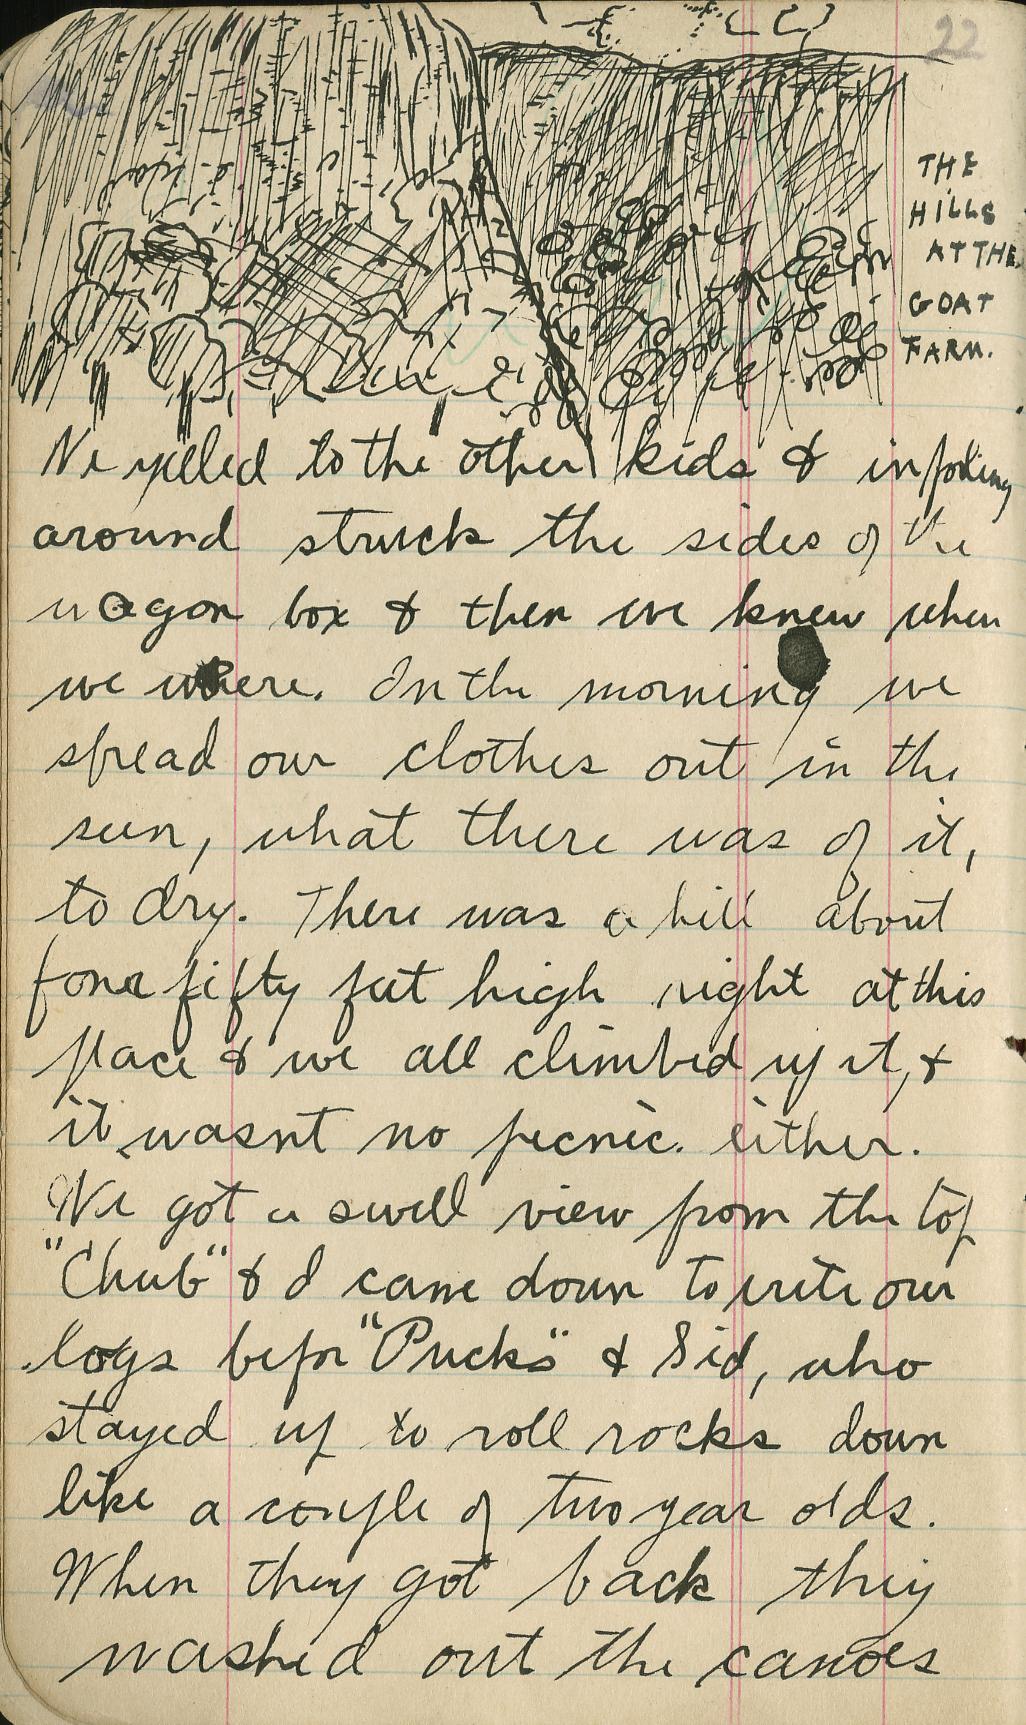 22
THE
HILLS
AT THE
GOAT
FARM.
We yelled to the other kids & in fooling
around struck the sides of the
wagon box & then we knew when
we where. In the morning we
spread our clothes out in the
sun, what there was of it,
to dry. There was a hill about
four fifty feet high right at this
place & we all climbed up it, &
it wasnt no picnic. either.
We got a swell view from the top
"Chub" & I came down to write our
logs befor "Pucks" & Sid, who
stayed up to roll rocks down
like a couple of two year olds.
When they got back they
washed out the canoes